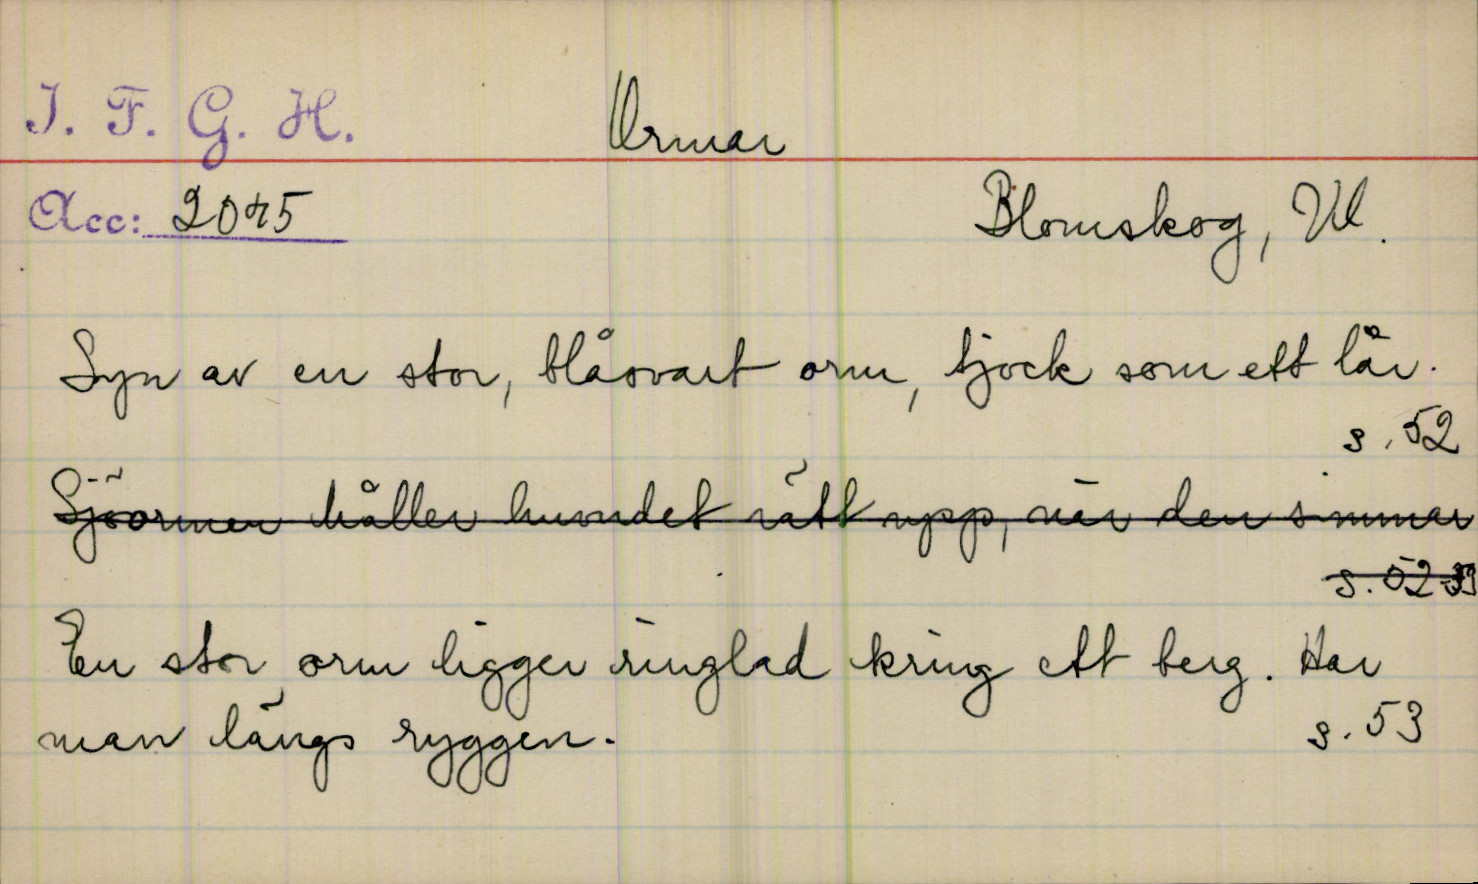 I. F. G. H.
Ormar
Acc: 2045
Blomskog, Vl.
Syn av en stor, blåsvart orm, tjock som ett lår.
s. 52
Sjöormen håller huvudet rätt upp, när den simmar
s. 52-53
En stor orm ligger ringlad kring ett berg. Har
man längs ryggen.
s. 53